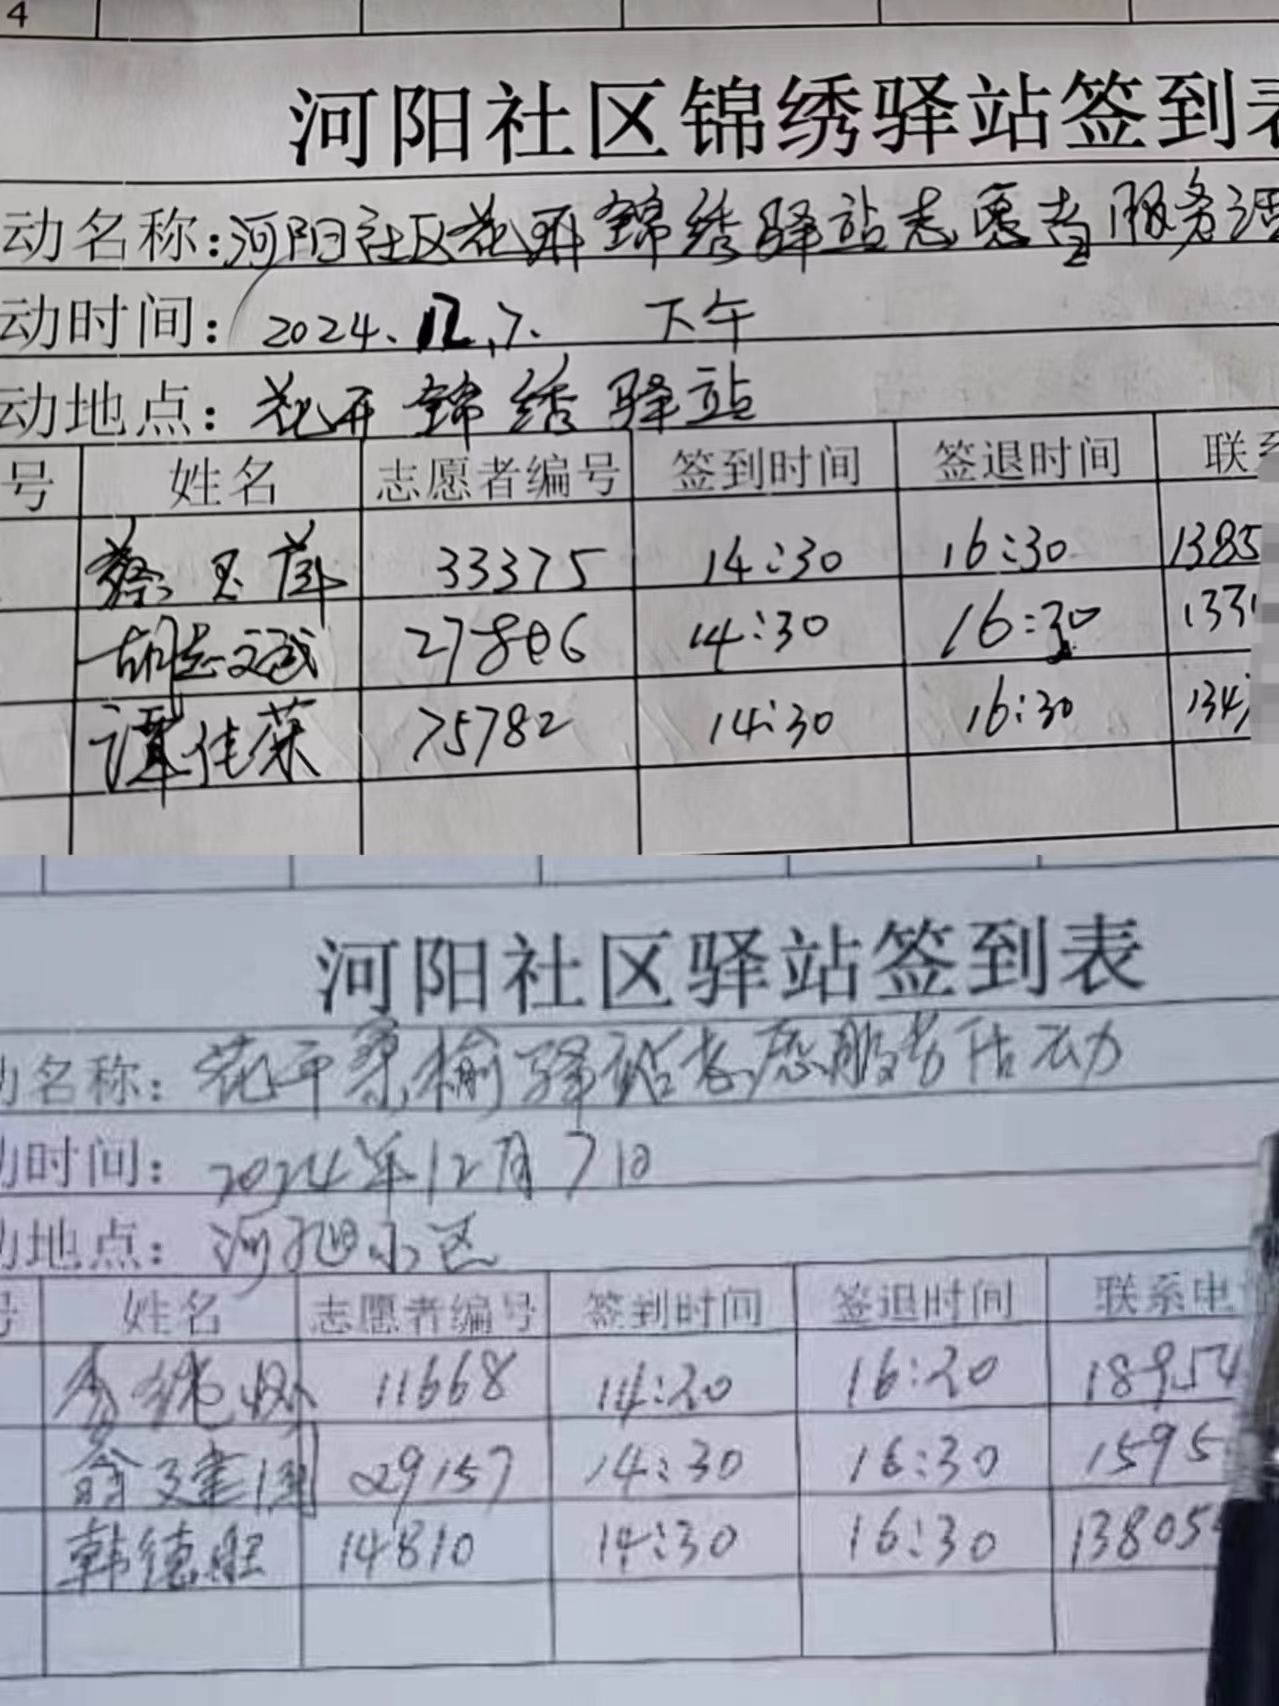 4
河阳社区锦绣驿站签到表
动名称:河阳社区花开锦绣驿站志愿者服务活
动时间: 2024.12.7. 下午
动地点: 花开锦绣驿站
号 姓名 志愿者编号 签到时间 签退时间 联系
蔡玉萍 33375 14:30 16:30 1385
胡志斌 27806 14:30 16:30 133
谭佳莱 75782 14:30 16:30 134
河阳社区驿站签到表
名称: 花开桑榆驿站志愿服务活动
时间: 2024年12月7日
地点: 河旭小区
号 姓名 志愿者编号 签到时间 签退时间 联系电
11668 14:20 16:20 18954
俞建国 29157 14:30 16:30 1595
韩德胜 14810 14:30 16:30 13805